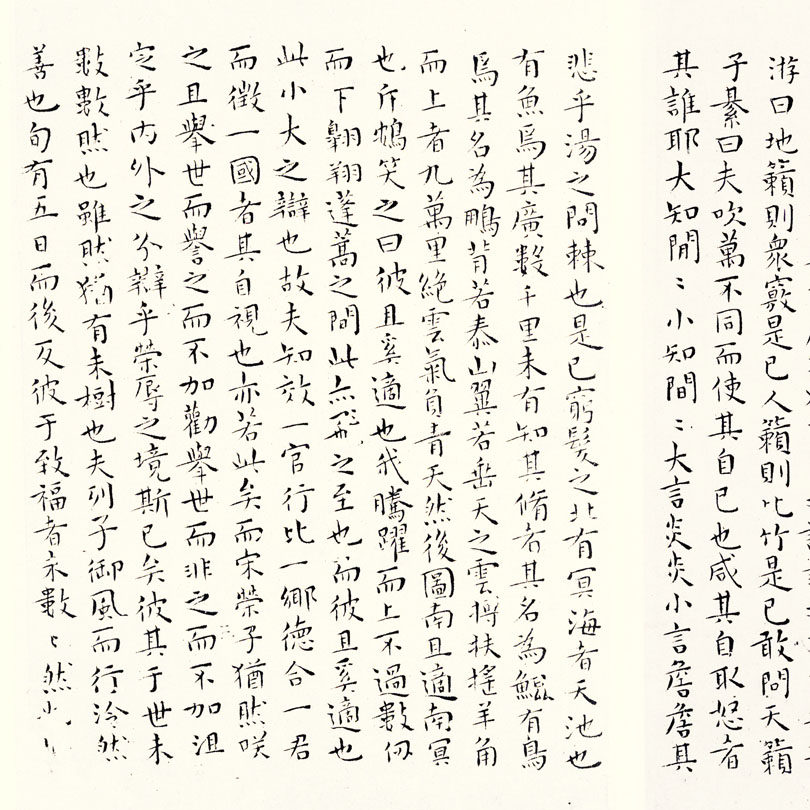 游曰地籟則衆竅是已人籟則比竹是已敢問天籟
子綦曰夫吹萬不同而使其自已也咸其自取怒者
其誰耶大知閒〻小知間〻大言炎炎小言詹詹其
悲乎湯之問棘也是已窮髮之北有冥海者天池也
有魚焉其廣數千里未有知其脩者其名為鯤有鳥
焉其名為鵬背若泰山翼若垂天之雲摶扶搖羊角
而上者九萬里絕雲氣負青天然後圖南且適南冥
也斥鴳笑之曰彼且奚適也我騰躍而上不過數仞
而下翱翔蓬蒿之間此亦飛之至也而彼且奚適也
此小大之辯也故夫知效一官行比一鄉德合一君
而徵一國者其自視也亦若此矣而宋榮子猶然咲
之且舉世而譽之而不加勸舉世而非之而不加沮
定乎內外之分辯乎榮辱之境斯已矣彼其于世未
數數然也雖然猶有未樹也夫列子御風而行泠然
善也旬有五日而後反彼于致福者未數〻然